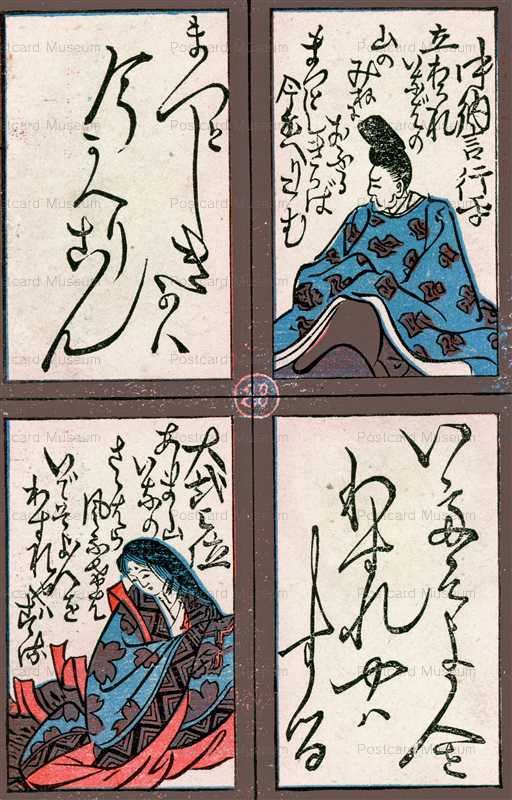 中納言行平
立わかれ
いなばの
山の
みねに
おふる
まつとしきかば
今かへりこむ
まつとしきかハ
今かへりこん
いでそよ人を
わすれやハ
する
大弐三位
ありま山
いなの
さゝはら
風ふけば
いでそよ人を
わすれやはする
Postcard Museum